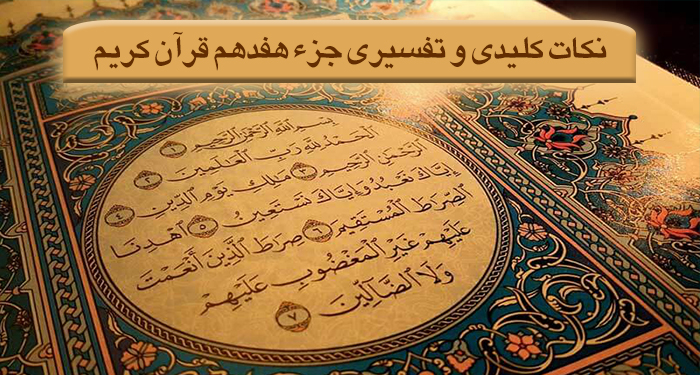 نکات کلیدی و تفسیری جزء هفدهم قرآن کریم
بِسْمِ ٱللَّهِ ٱلرَّحْمَٰنِ ٱلرَّحِيمِ ١
ٱلْحَمْدُ لِلَّهِ رَبِّ ٱلْعَٰلَمِينَ ٢
ٱلرَّحْمَٰنِ ٱلرَّحِيمِ ٣ مَٰلِكِ يَوْمِ ٱلدِّينِ ٤
إِيَّاكَ نَعْبُدُ وَإِيَّاكَ نَسْتَعِينُ ٥ ٱهْدِنَا
ٱلصِّرَٰطَ ٱلْمُسْتَقِيمَ ٦ صِرَٰطَ ٱلَّذِينَ أَنْعَمْتَ
عَلَيْهِمْ غَيْرِ ٱلْمَغْضُوبِ عَلَيْهِمْ
وَلَا ٱلضَّآلِّينَ ٧